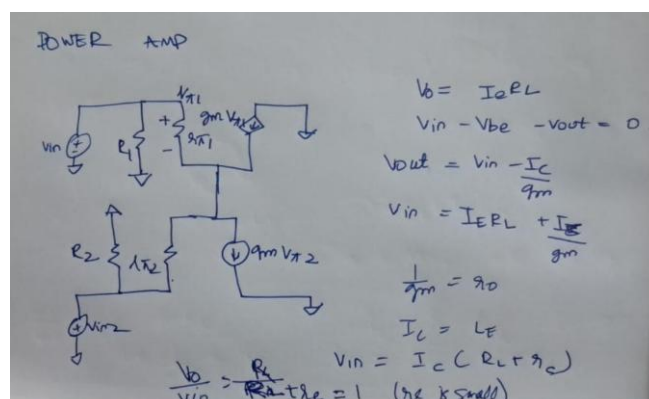 POWER AMP
Vπ1
+
gm Vπ1
Vin
R1
rπ1
-
R2
rπ2
gm Vπ2
Vin2
Vo = IeRL
Vin - Vbe - Vout = 0
Vout = Vin - IC/gm
Vin = IERL + IE/gm
1/gm = re
IC = IE
Vin = Ic (RL + re)
Vo/Vin = RL/RL+re = 1 (re is small)